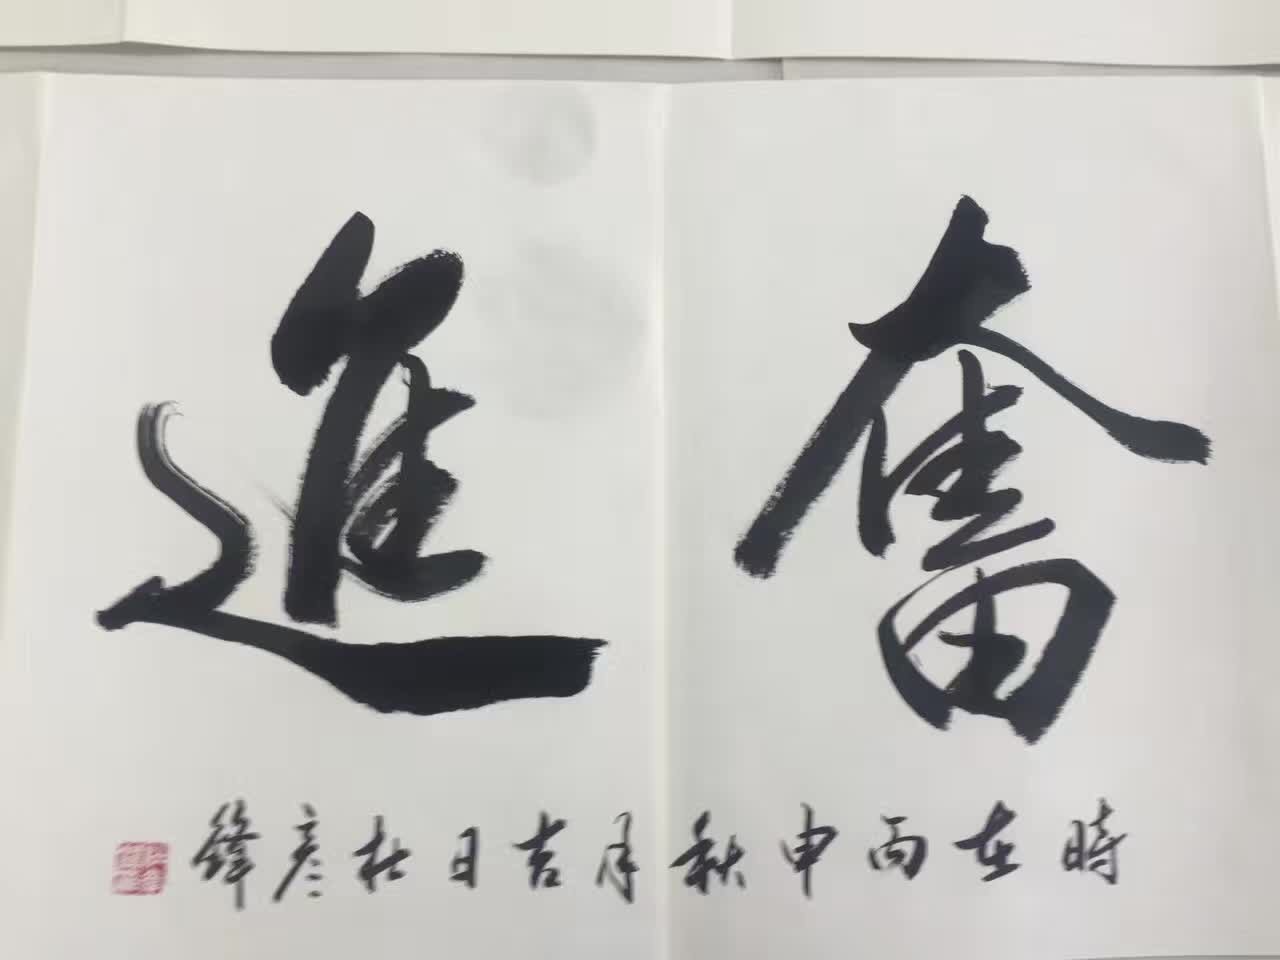 奮進
時在丙申秋月吉日杜彦鋒